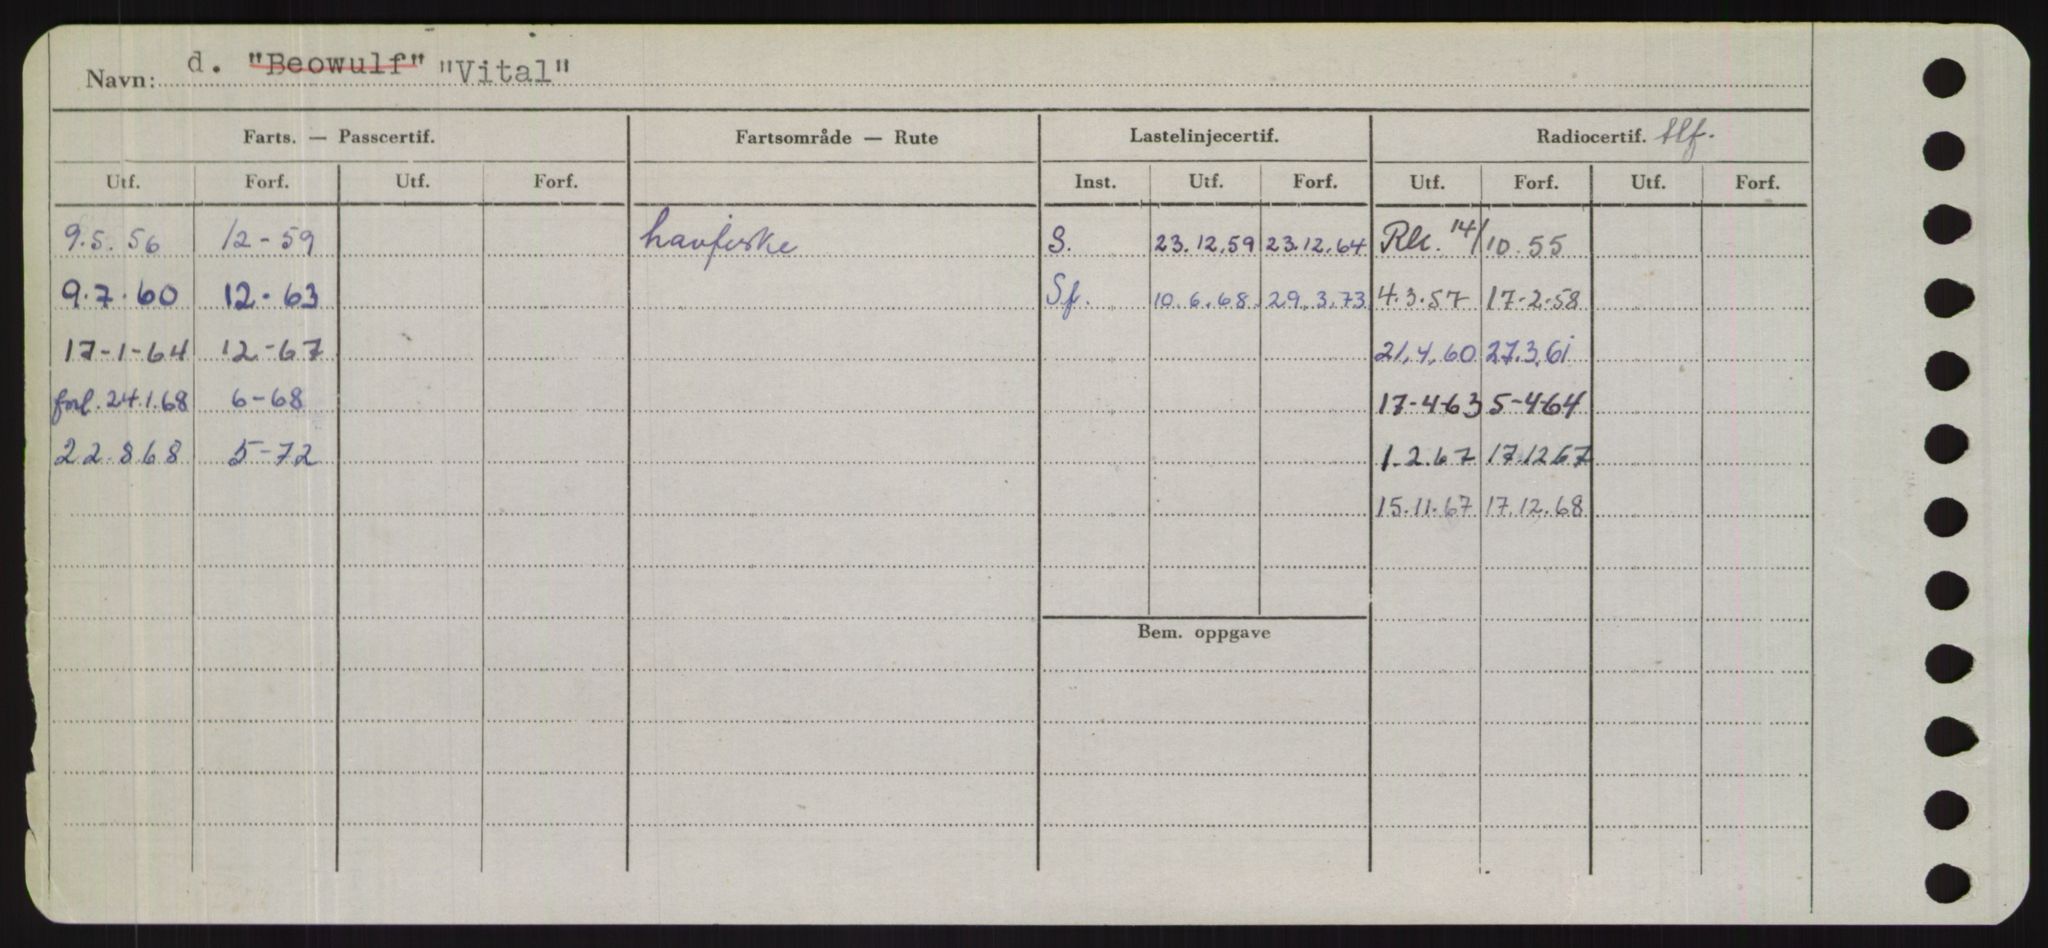 Navn: d. "Beowulf" "Vital"
Farts. — Passcertif. Fartsområde — Rute Lastelinjecertif. Radiocertif. tlf.
Utf. Forf. Utf. Forf. Inst. Utf. Forf. Utf. Forf. Utf. Forf.
9.5.56 12-59 havfiske S. 23.12.59 23.12.64 14/10.55
9.7.60 12-63 Sf. 10.6.68 29.3.73 4.3.57 17-2-58
17-1-64 12-67 21.4.60 27.3.61
forl. 24.1.68 6-68 17-4-63 5-4-64
22.8.68 5-72 1.2.67 17.12.67
15.11.67 17.12.68
Bem. oppgave